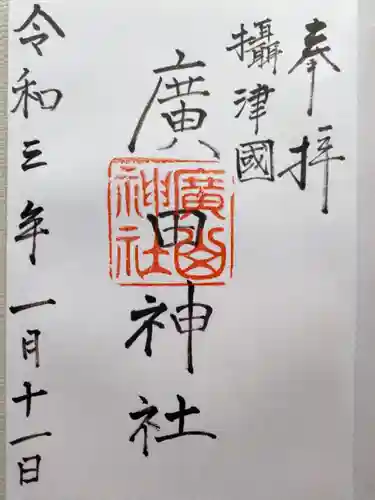 奉拝
攝津國
廣田神社
令和三年一月十一日
廣田
神社